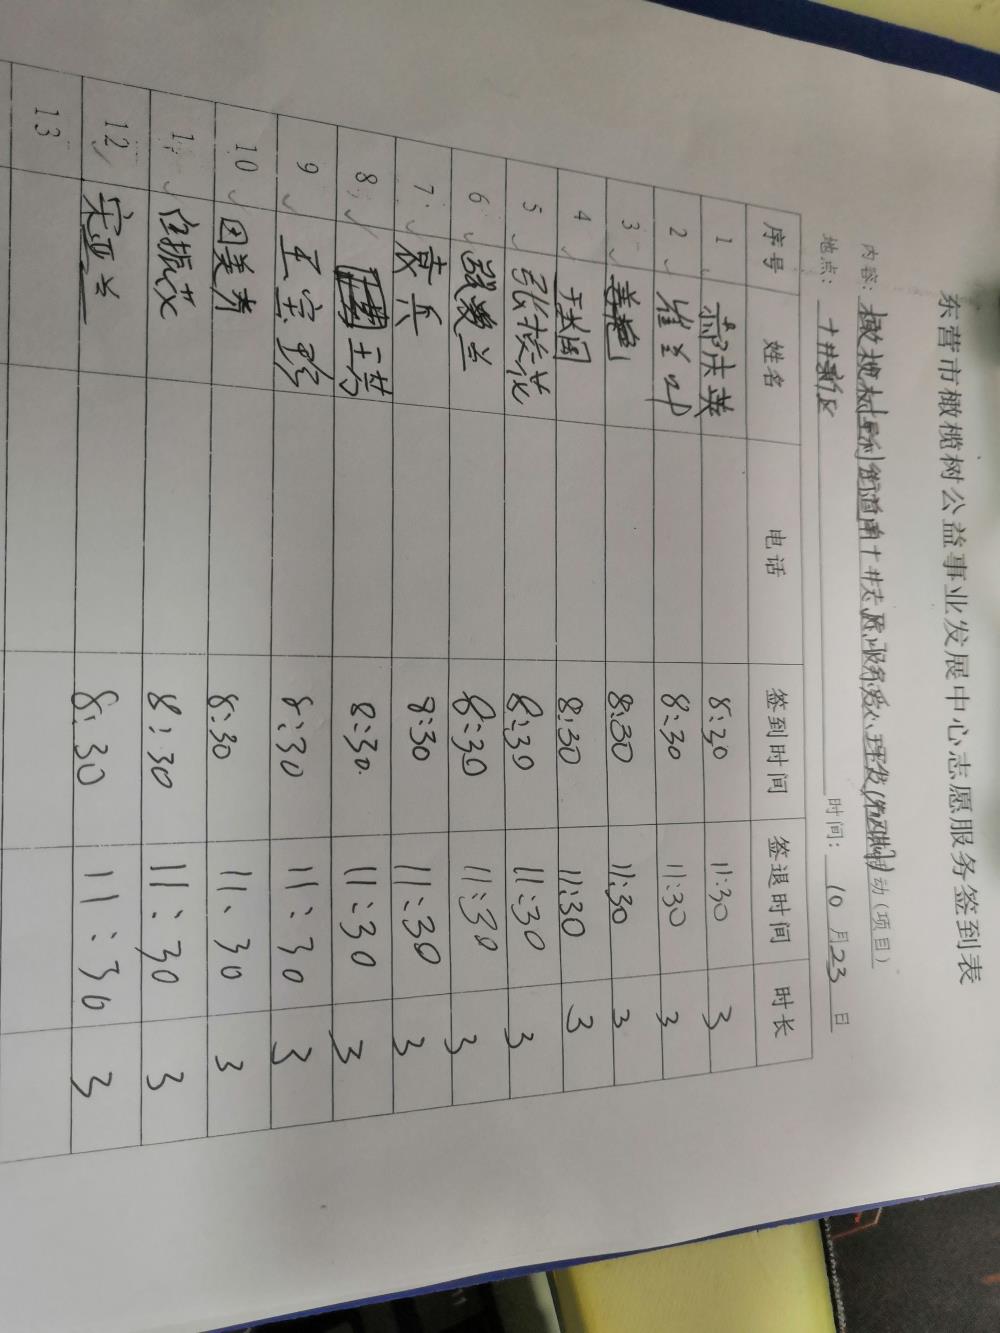 东营市橄榄树公益事业发展中心志愿服务签到表
内容: 橄榄树胜利街道南十井志愿服务爱心理发(第四期)活动(项目)
地点: 十井新区 时间: 10月23日
序号 姓名 电话 签到时间 签退时间 时长
1 郝庆英 8:30 11:30 3
2 崔兰叶 8:30 11:30 3
3 姜艳 8:30 11:30 3
4 8:30 11:30 3
5 张按花 8:30 11:30 3
6 8:30 11:30 3
7 袁兵 8:30 11:30 3
8 8:30 11:30 3
9 王宝珍 8:30 11:30 3
10 田美秀 8:30 11:30 3
11 8:30 11:30 3
12 宋亚兰 8:30 11:30 3
13